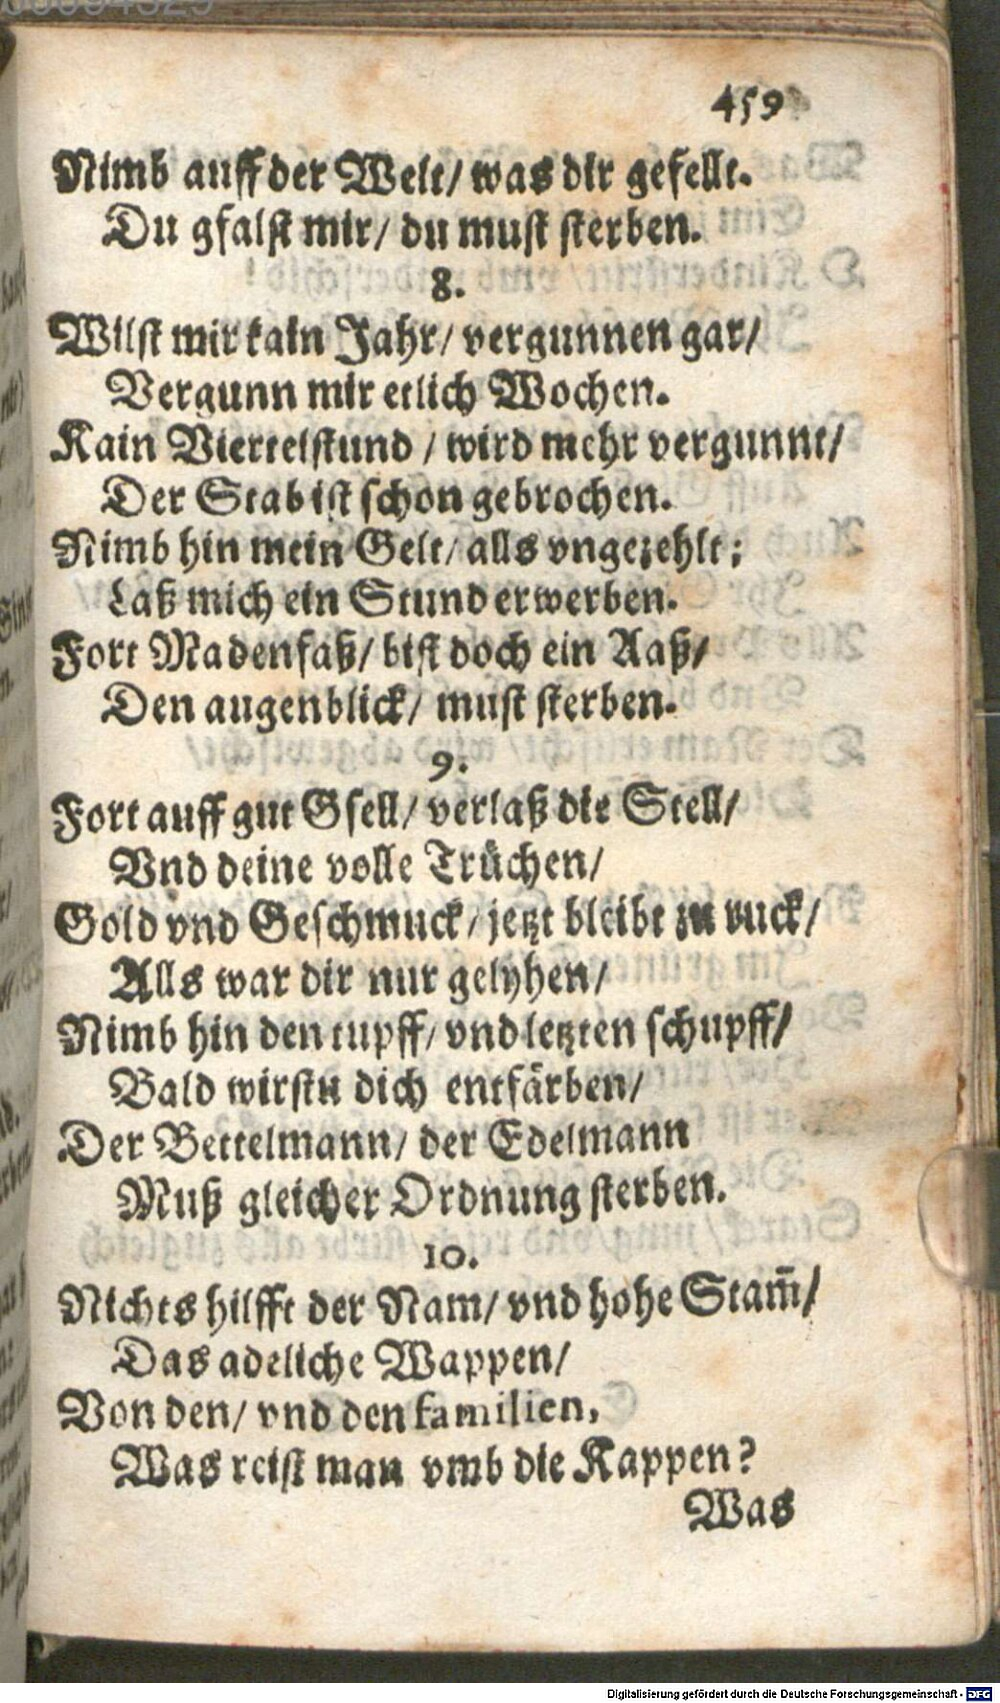 459
Nimb auff der Welt/ was dir gefellt.
Du gfalst mir/ du must sterben.
8.
Wilst mir kain Jahr/ vergunnen gar/
Vergunn mir etlich Wochen.
Kain Viertelstund / wird mehr vergunnt/
Der Stab ist schon gebrochen.
Nimb hin mein Gelt/ alls vngezehlt;
Laß mich ein Stund erwerben.
Fort Madensaß/ bist doch ein Aaß/
Den augenblick/ must sterben.
9.
Fort auff gut Gsell/ verlaß die Stell/
Vnd deine volle Trüchen/
Gold vnd Geschmuck/ jetzt bleibt zu ruck/
Alls war dir nur gelyhen/
Nimb hin den tupff/ vnd letzten schupff/
Bald wirstu dich entfärben/
Der Bettelmann/ der Edelmann
Muß gleicher Ordnung sterben.
10.
Nichts hilfft der Nam/ vnd hohe Stam̃/
Das adeliche Wappen/
Von den/ vnd den familien,
Was reist man vmb die Kappen?
Was
Digitalisierung gefördert durch die Deutsche Forschungsgemeinschaft - DFG